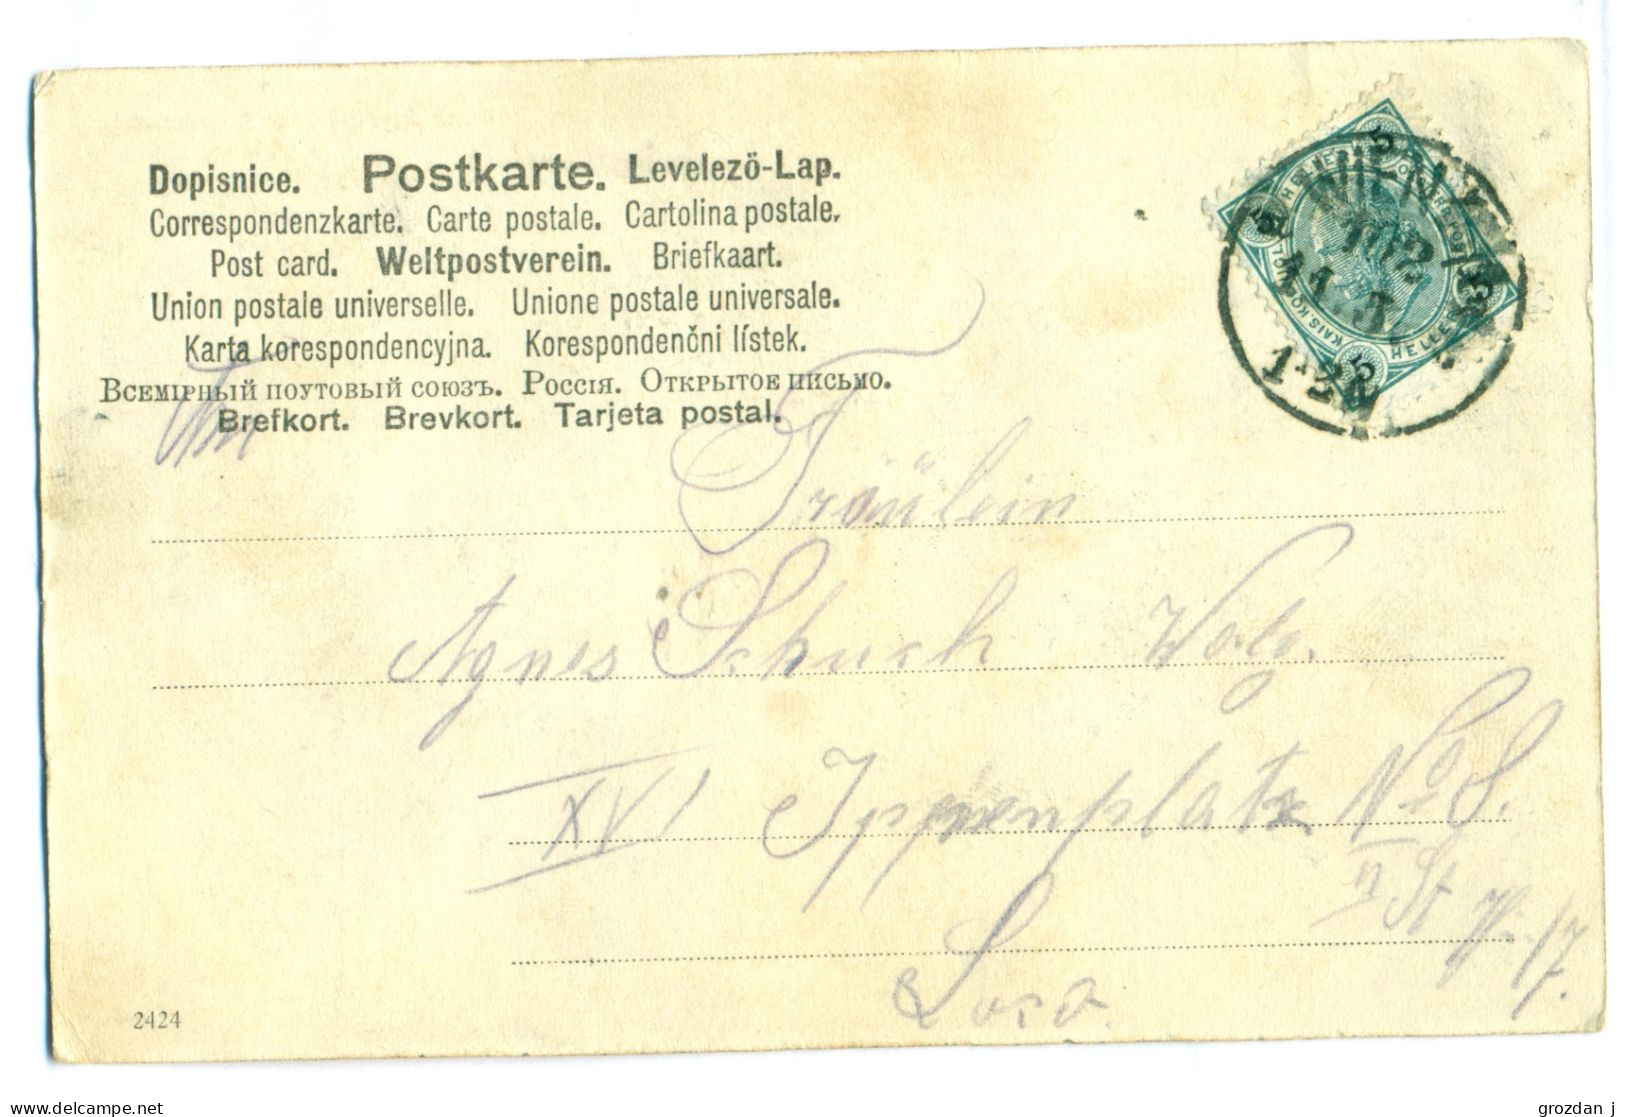 Dopisnice. Postkarte. Levelezö-Lap.
Correspondenzkarte. Carte postale. Cartolina postale.
Post card. Weltpostverein. Briefkaart.
Union postale universelle. Unione postale universale.
Karta korespondencyjna. Korespondenční lístek.
Всемірный поутовый союзъ. Россія. Открытое письмо.
Brefkort. Brevkort. Tarjeta postal.
WIEN
102
1·2N
HELLER
5
An
Fräulein
Agnes Schuch Wolg.
XVI Ippenplatz No 8.
II St
2424
grozdan j
www.delcampe.net